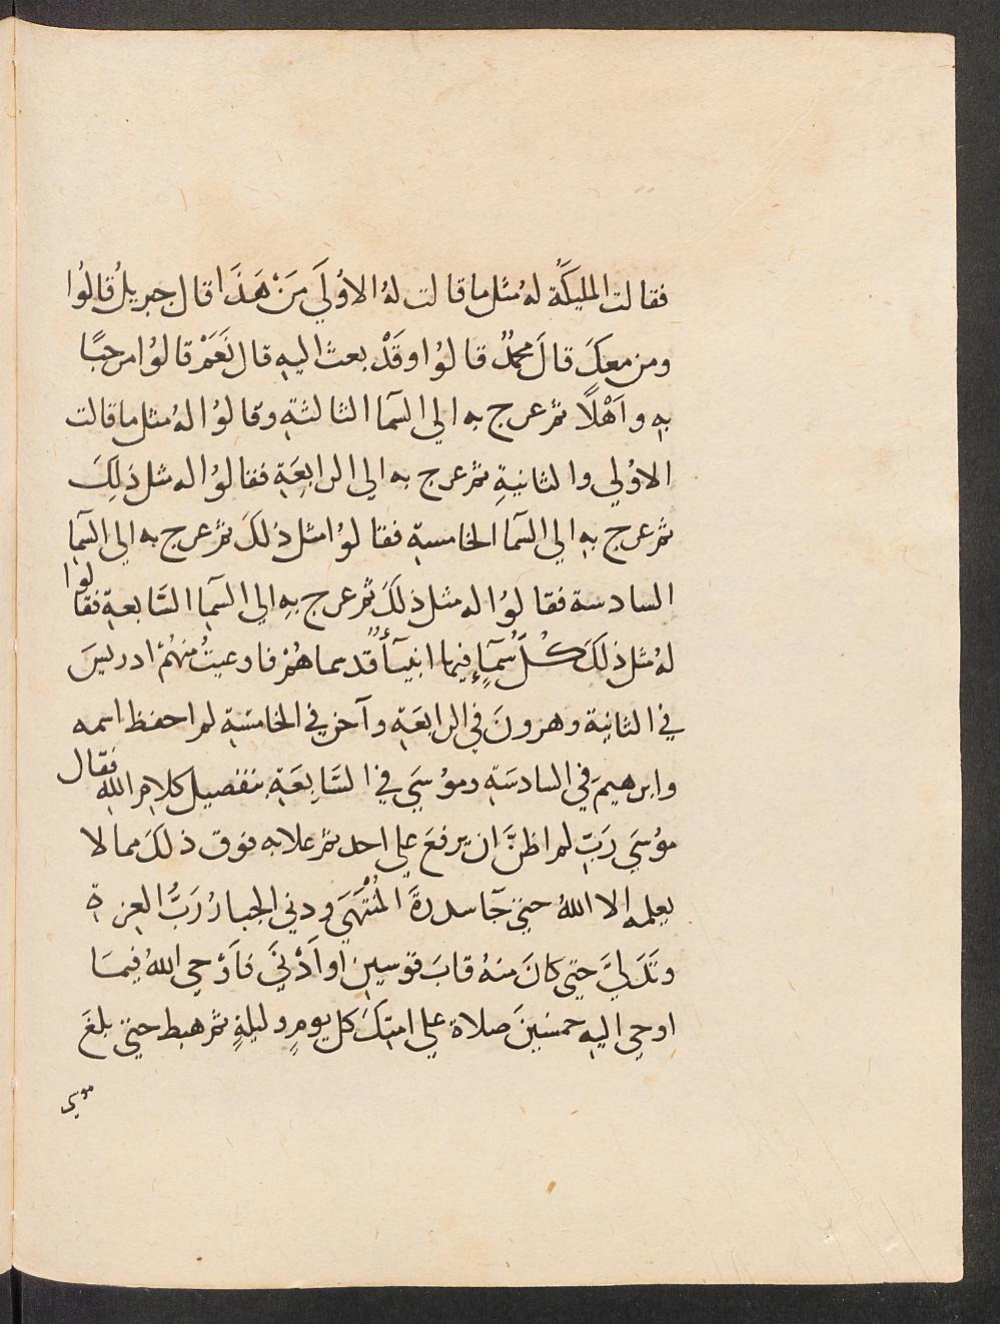 فقالت المليكَةُ لهُ مثل ما قالت لهُ الاوُلَي مَنْ هَذَا قال جبريلُ قالوُا
ومن معكَ قالَ محمدٌ قالوُا وقَدْ بعث اليهِ قال نَعَمْ قالوُا مرحبًا
بهِ واَهْلًا ثم عرج به الي السمآ الثالثةِ وقالوُا لهُ مثل ما قالت
الاوُلي والثانيةِ ثم عرج به الي الرابِعَةِ فقالوُا له مثل ذلِكَ
ثم عرج بهِ الي السمآ الخامسةِ فقالوُا مثل ذلكَ ثم عرج به الي السمآ
السادسة فقالوُا له مثل ذلكَ ثم عرج بهِ الي السمآ السَّابعةِ فقالوا
لهُ مثل ذلكَ كُلُّ سَمآءٍ فيها انبيآءٌ قد سماهُمْ فاوعيتُ منهُمْ ادريسَ
في الثانية وهرونَ في الرابعَةِ وآخر في الخامسَةِ لم احفظ اسمه
وابرهيمَ في السادسَةِ وموُسَي في السَّابِعَةِ بتفضيل كلامِ اللهِ فقال
موُسَي رَبِّ لم اظنَّ ان يرفعَ علي احد ثم علا به فوق ذلكَ مما لا
يعلمه الا اللهُ حتي جآ سدرةَ المُنْتَهَي ودني الجبارُ رَبُّ العزةِ
وتَدَليَّ حتي كانَ منهُ قابَ قوسينِ اواَدْنيَ فاَوْحي اللهُ فيمَا
اوحي اليهِ خمسْينَ صلاة علي امتِّكَ كل يومٍ وليلةٍ ثم هبط حتي بلغَ
موسي